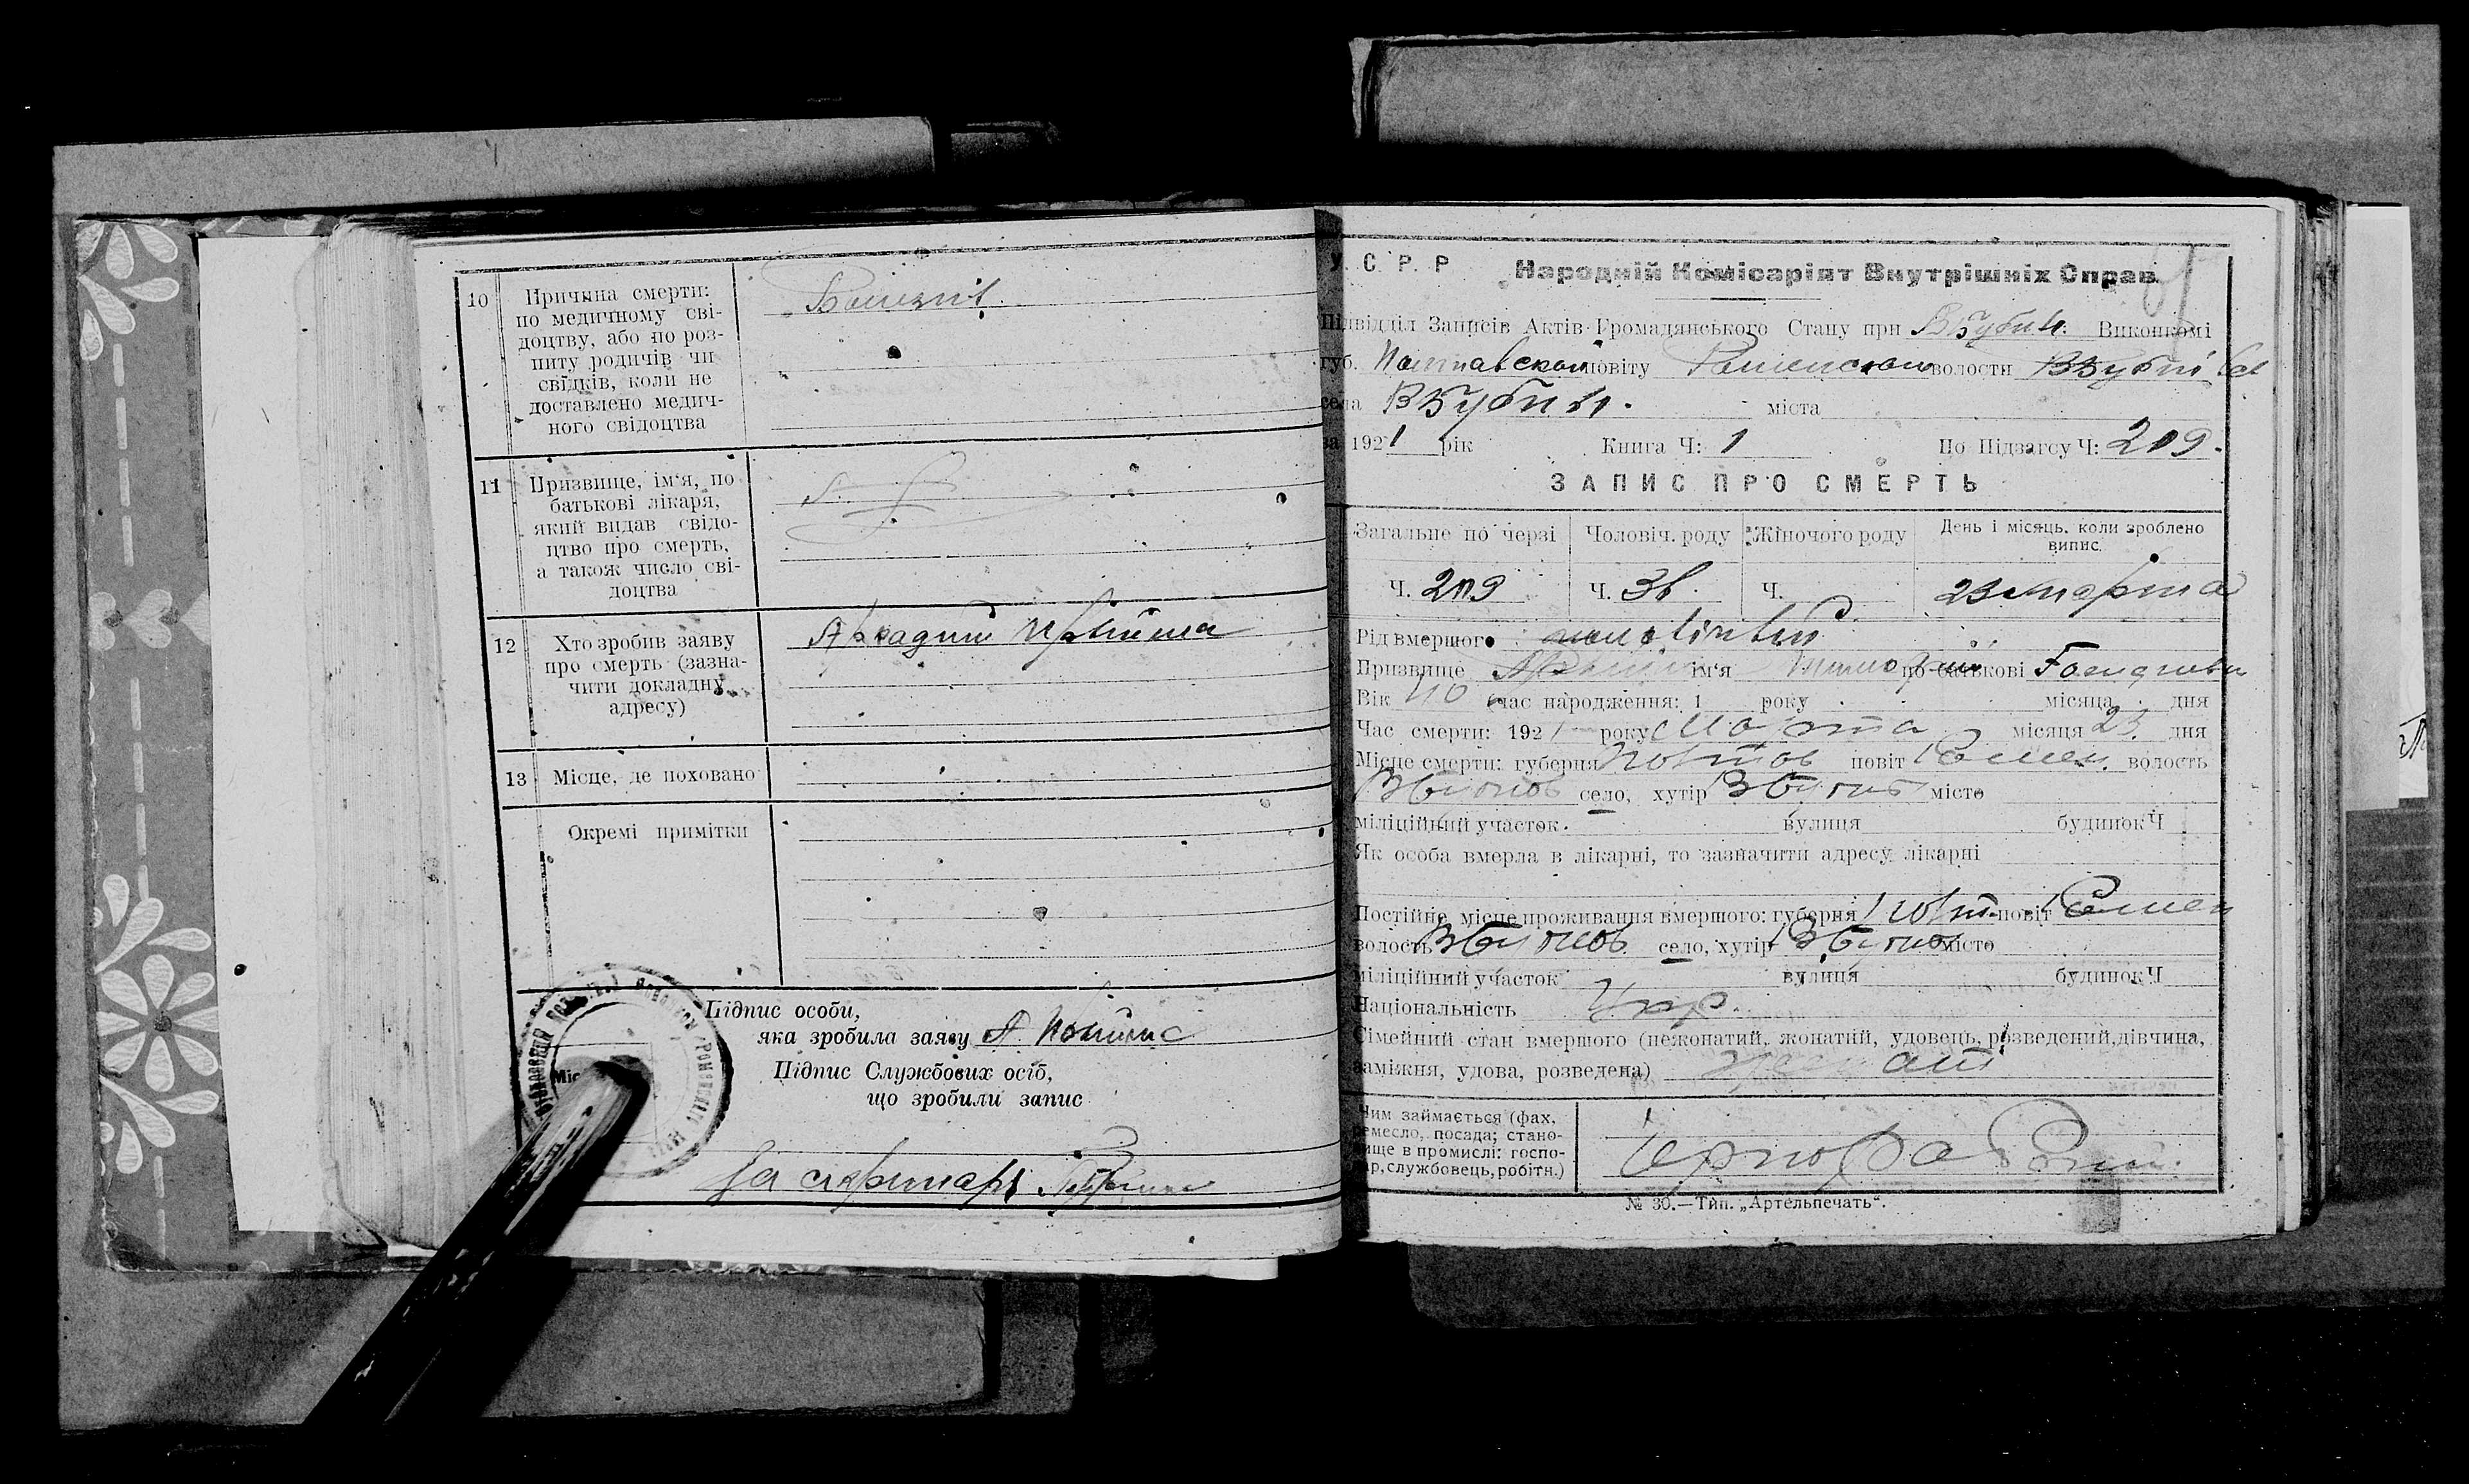 10 Причина смерти:
по медичному сві-
доцтву, або по роз-
питу родичів чи
свідків, коли не
доставлено медич-
ного свідоцтва
11 Призвище, ім'я, по
батькові лікаря,
який видав свідо-
цтво про смерть,
а також число сві-
доцтва
12 Хто зробив заяву
про смерть (зазна-
чити докладну
адресу)
Аркадий
13 Місце, де поховано
Окремі примітки
Підпис особи,
яка зробила заяву А.
Підпис Службових осіб,
що зробили запис
За
У. С. Р. Р Народній Комісаріят Внутрішніх Справ
Підвідділ Записів Актів Громадянського Стану при В Бубни. Виконкомі
губ. Полтавской повіту Роменском волости
села В Бубни. міста
за 1921 рік Книга Ч: 1 По Підзагсу Ч: 209.
ЗАПИС ПРО СМЕРТЬ
Загальне по черзі Чоловіч. роду Жіночого роду День і місяць, коли зроблено
випис.
Ч. 209 Ч. Ч. 23 марта
Рід вмершого чоловічий
Призвище ім'я по-батькові
Вік 40 (час народження: 1 року місяця дня
Час смерти: 1921 року Марта місяця 23 дня
Місце смерти: губерня Полтав повіт Ромен. волость
село, хутір місто
міліційний участок вулиця будинок Ч
Як особа вмерла в лікарні, то зазначити адресу лікарні
Постійне місце проживання вмершого: губерня Полт. повіт Ромен
волость село, хутір місто
міліційний участок вулиця будинок Ч
Національність Укр.
Сімейний стан вмершого (нежонатий, жонатий, удовець, розведений, дівчина,
заміжня, удова, розведена) жонат
Чим займається (фах,
ремесло, посада; стано-
вище в промислі: госпо-
дар, службовець, робітн.)
№ 30.—Тип. „Артельпечать“.